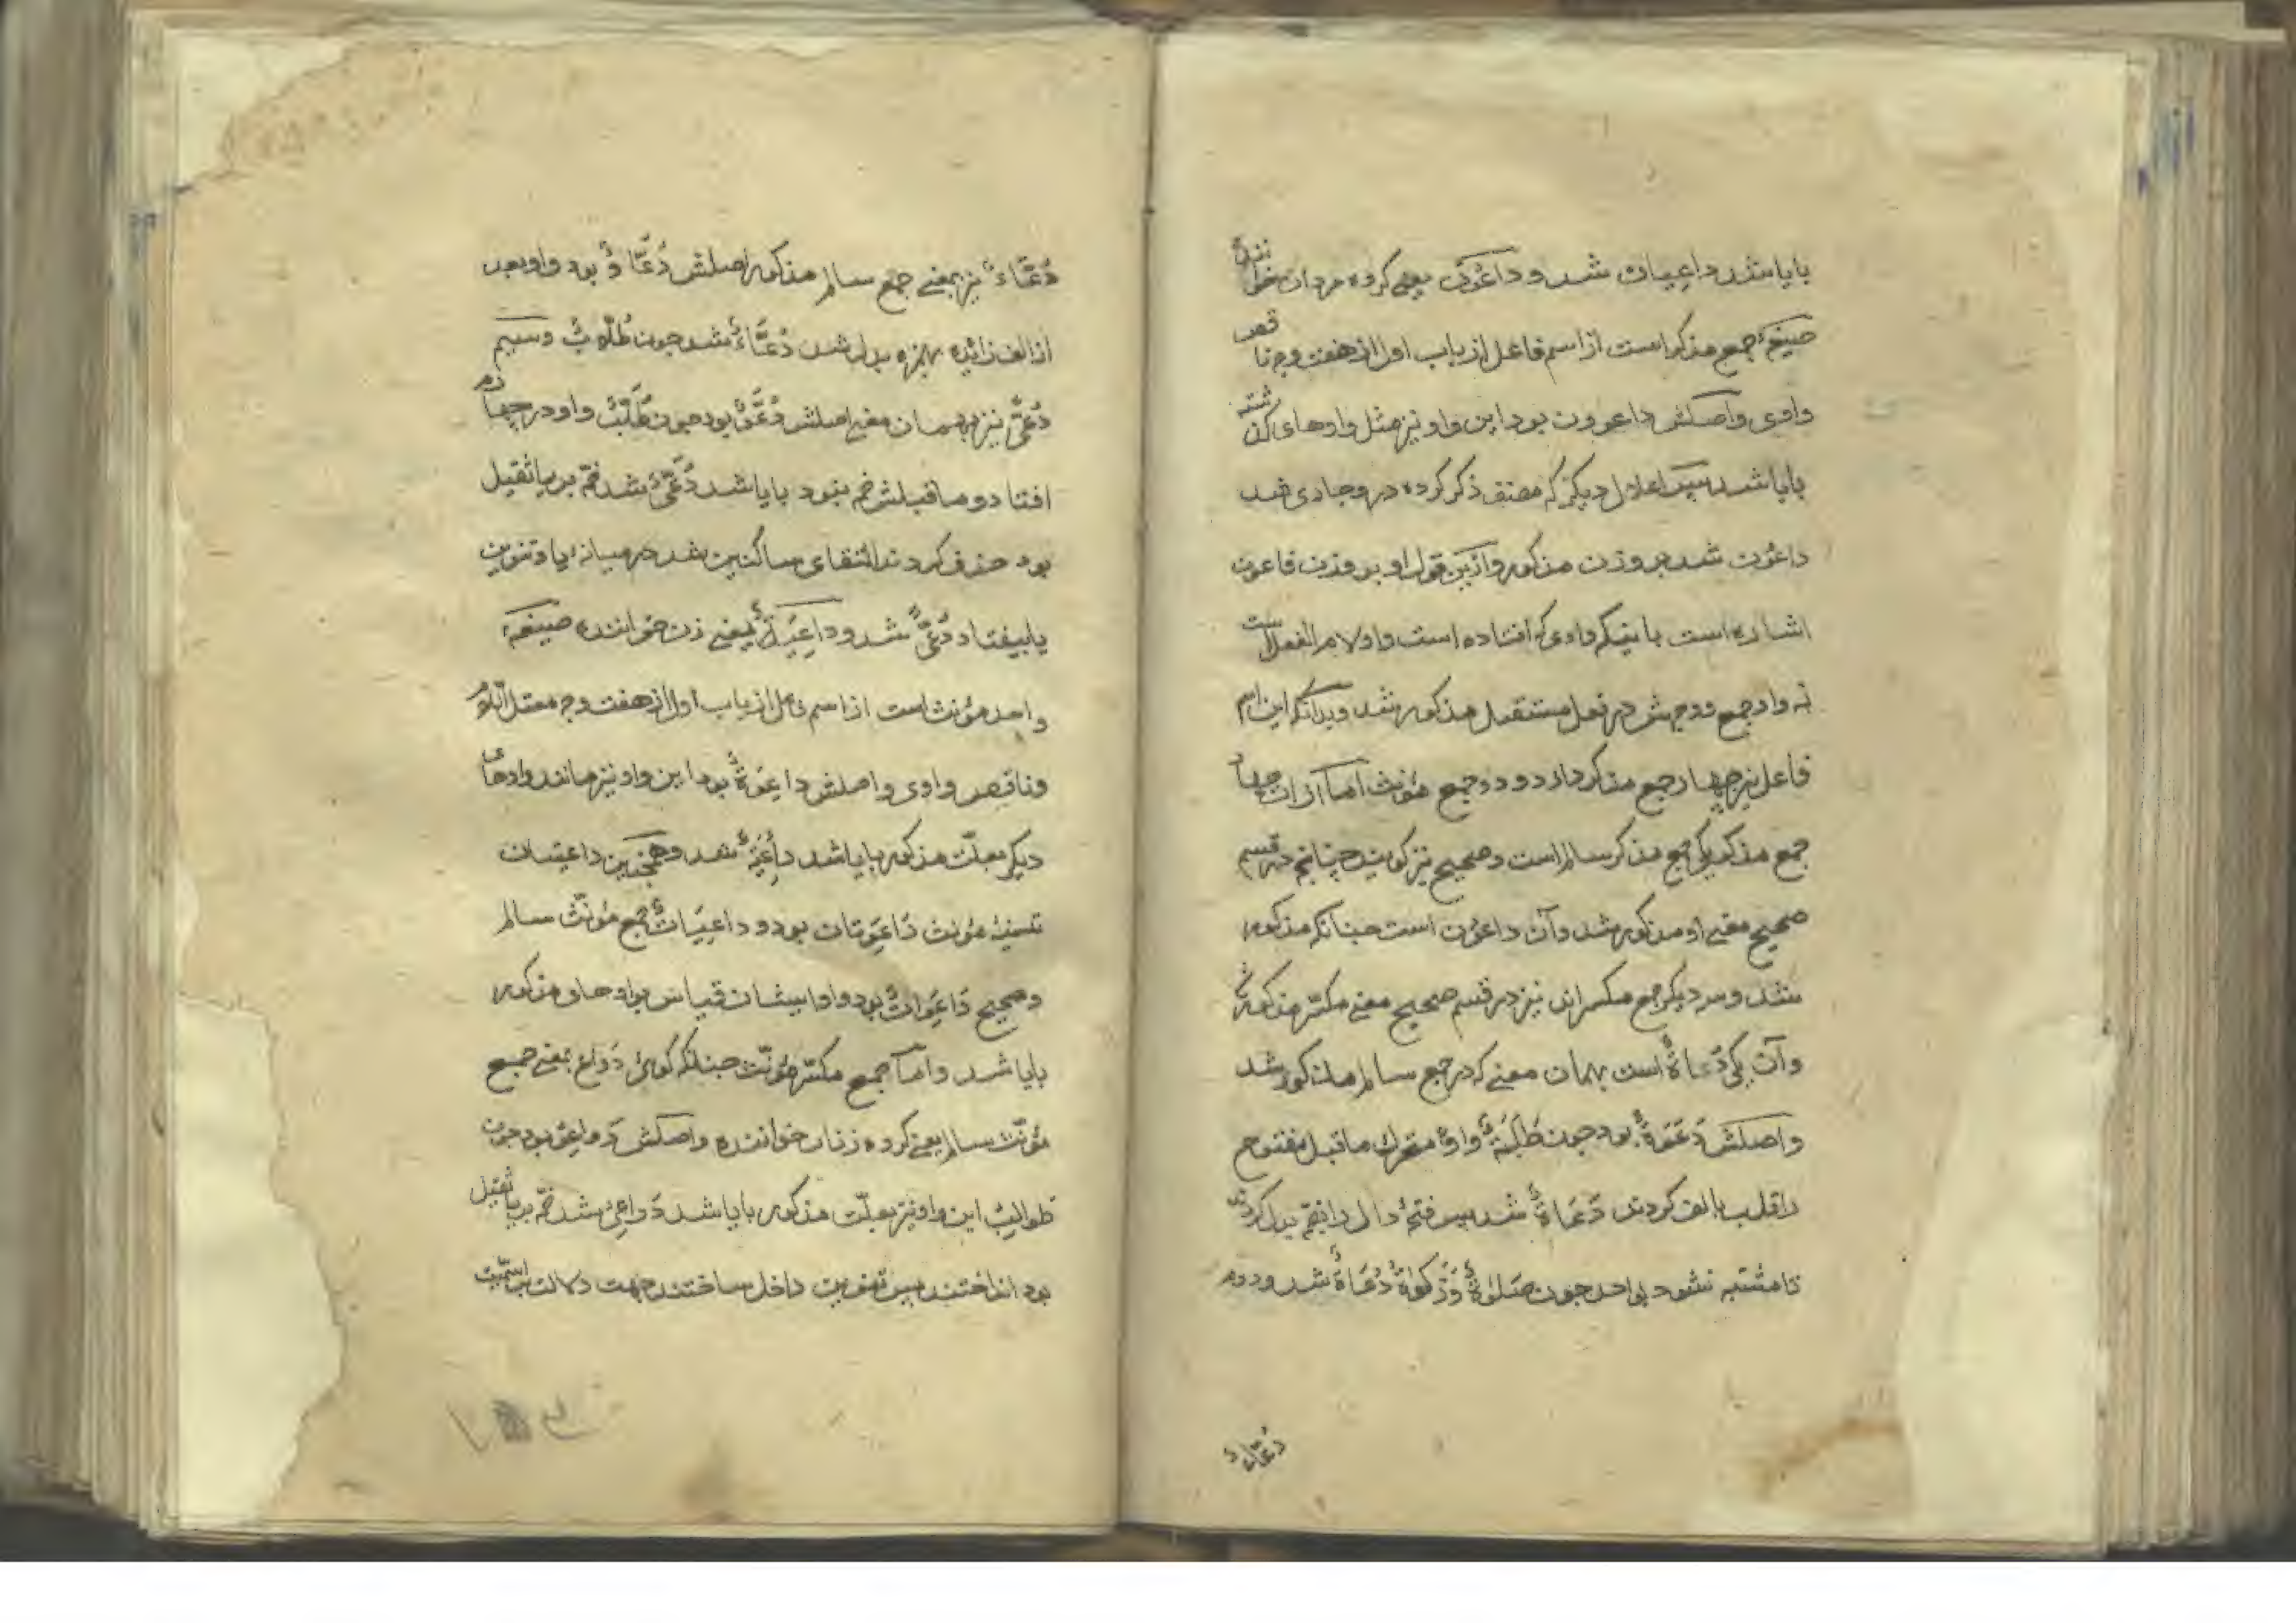 بایا شد داعیان شد و داعُون یعنی کروه مردان خوانندهٔ
صیغهٔ جمع مذکر است از اسم فاعل از باب اول از هفت وجه ناقص
واوی و اصلش داعوون بود این واو نیز مثل واوهای کذشته
بایا شد پس اعلال دیکر که مصنف ذکر کرده در وجا دی شد
داعُون شد بر وزن مذکور و ازین قول او بر وزن فاعون
اشاره است باینکه واوی که افتاده است واو لام الفعل است
نه واو جمع و وجهش در فعل مستقبل مذکور شد و بدانکه این اسم
فاعل نیز چهار جمع مذکر دارد و دو جمع مؤنث اما از ان چهار
جمع مذکر یکی جمع مذکر سالم است و صحیح نیز کویند چنانچه در قسم
صحیح معنی او مذکور شد و آن داعُون است جنانکه مذکور
شد و سه دیکر جمع مکسراند نیز در قسم صحیح معنی مکسّر مذکور شد
و آن یکی دُعاةٌ است بهمان معنی که در جمع سالم مذکور شد
و اصلش دَعَوَةٌ بود جون طَلَبَةٌ واو متحرک ماقبل مفتوح
را قلب بالف کردند دَعَاةٌ شد پس فتحهٔ دال را بضمّه بدل کردند
تا مشتبه نشود بواحد جون صَلوٰةٌ وَزَکوٰةٌ دُعَاةٌ شد و دوم
دُعَّاءٌ
دُعَّاءٌ نیز بمعنی جمع سالم مذکور اصلش دُعَّاوٌ بود واو بعد
از الف زائده بهمزه بدل شد دُعَّاءٌ شد جون طُلّابٌ و سیم
دُعًّی نیز بهمان معنی اصلش دُعَّوٌ بود جون طُلَّبٌ واو در چهارم
افتاد و ماقبلش ضمه نبود بایا شد دُعَّیٌ شد ضمّه بر یا ثقیل
بود حذف کردند التقای ساکنین شد در میانهٔ یا و تنوین
یا بیفتاد دُعًّی شد و داعِیَةٌ بمعنی زن خواننده صیغهٔ
واحد مؤنث است از اسم فاعل از باب اول از هفت وجه معتل اللام
و ناقص واوی و اصلش داعِوَةٌ بود این واو نیز مانند واوهای
دیکر بعلّت مذکور بایا شد داعِیَةٌ شد و همچنین داعیتان
تثنیهٔ مؤنث دَاعِوَتان بود و داعِیَاتٌ جمع مؤنّث سالم
و صحیح دَاعِوَاتٌ بود واو ایشان قیاس بواوهای مذکور
بایا شد و امّا جمع مکسّر مؤنّث جنانکه کوئی دَوَاعٍ بمعنی جمع
مؤنّث سالم یعنی کروه زنان خواننده و اصلش دَوَاعِوُ بود جون
طَوالِبُ این واو نیز بعلّت مذکور بایا شد دَواعِیُ شد ضمّه بر یا ثقیل
بود انداختند پس تنوین داخل ساختند جهت دلالت بر اسمیّت